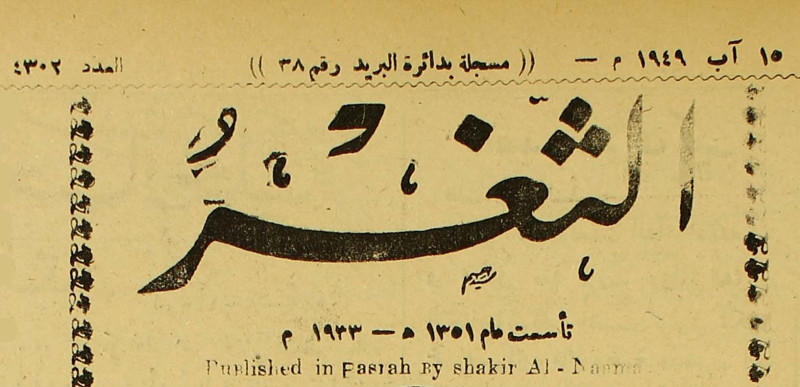 ١٥ آب ١٩٤٩ م — (( مسجلة بدائرة البريد رقم ٣٨ )) العدد ٤٣٠٢
الثغر
تأسست عام ١٣٥١ ه — ١٩٣٣ م
Published in Basrah By shakir Al -